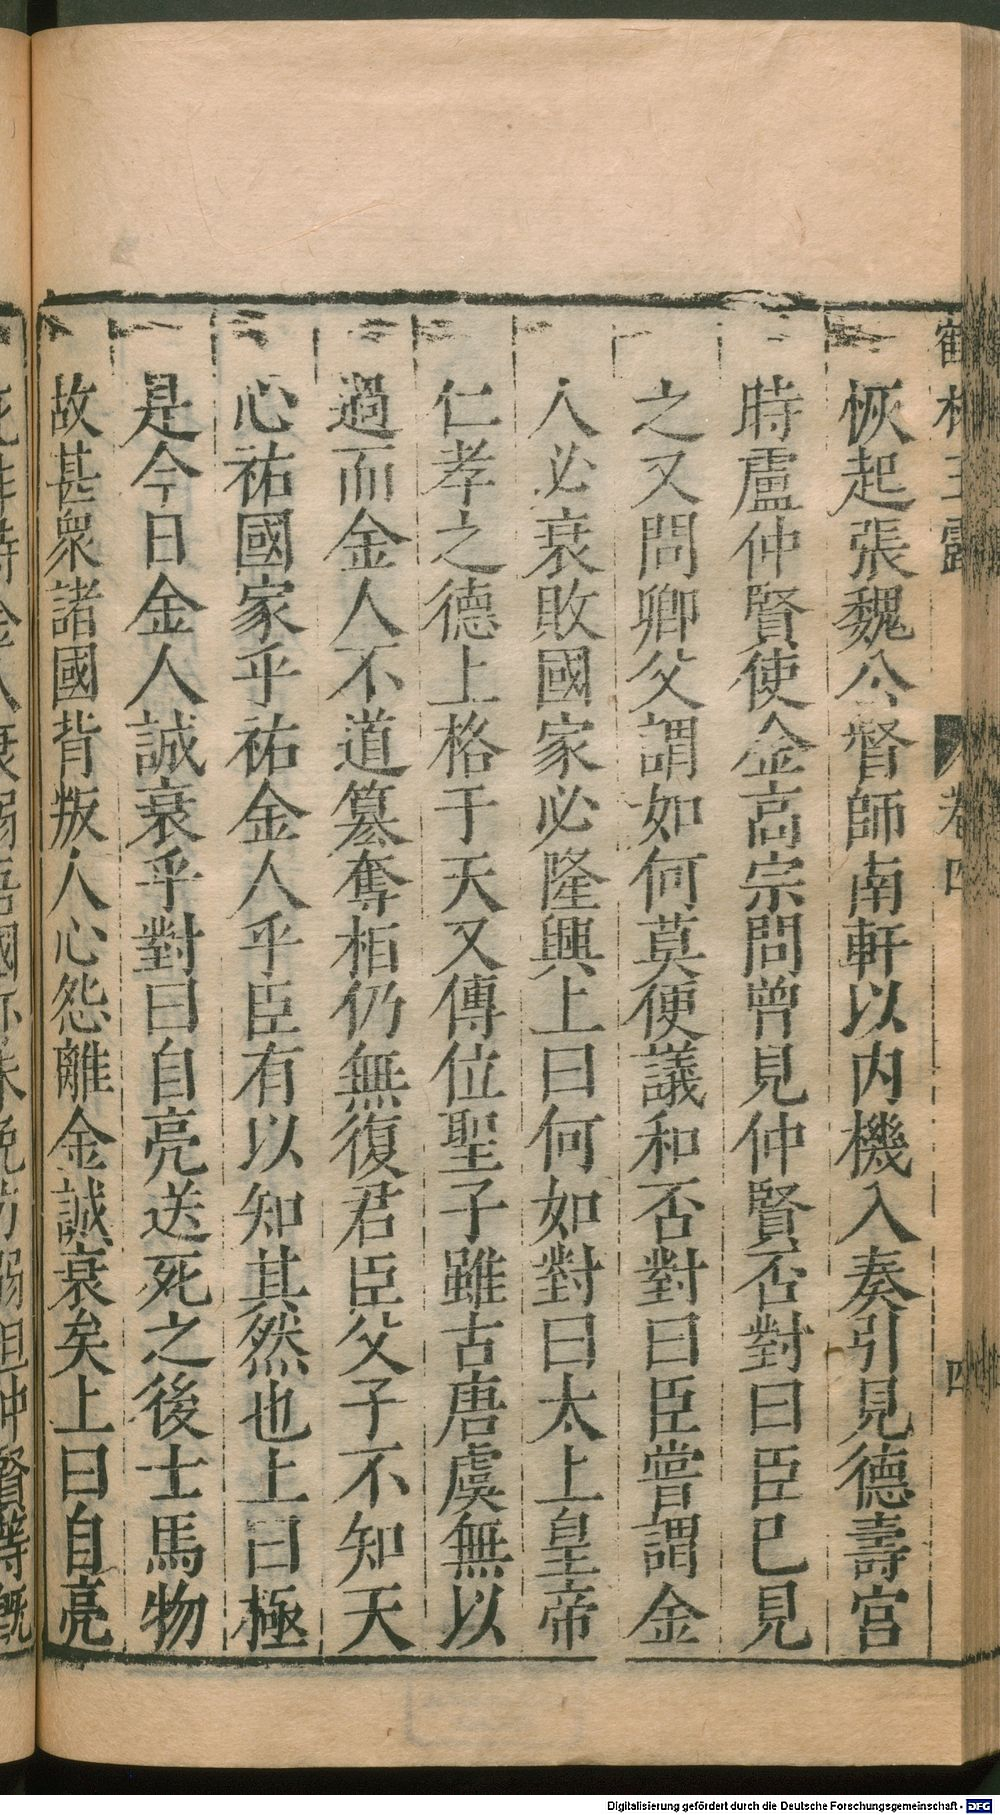 恢起張魏公督師南軒以内機入奏引見德壽宮
時盧仲賢使金高宗問曾見仲賢否對曰臣已見
之又問卿父謂如何莫便議和否對曰臣嘗謂金
人必衰敗國家必隆興上曰何如對曰太上皇帝
仁孝之德上格于天又傳位聖子雖古唐虞無以
過而金人不道簒奪相仍無復君臣父子不知天
心祐國家乎祐金人乎臣有以知其然也上曰極
是今日金人誠衰乎對曰自亮送死之後士馬物
故甚衆諸國背叛人心怨離金誠衰矣上曰自亮
卷四
四
Digitalisierung gefördert durch die Deutsche Forschungsgemeinschaft - DFG